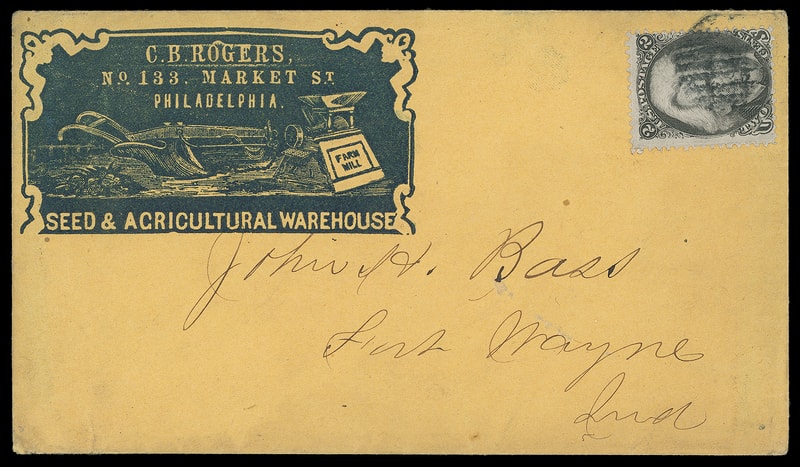 C.B. ROGERS,
No. 133. MARKET ST
PHILADELPHIA.
FARM
MILL
SEED & AGRICULTURAL WAREHOUSE
U.S. POSTAGE
2 2
John H. Bass
Fort Wayne
Ind